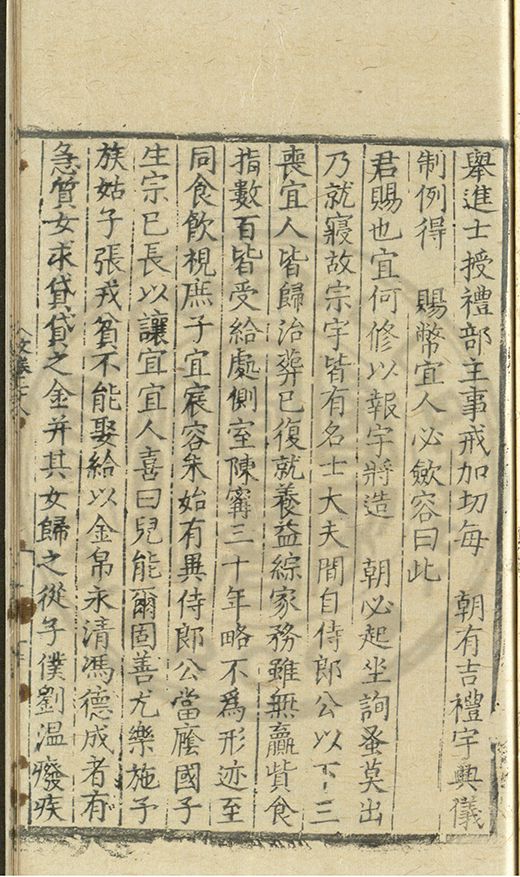 舉進士授禮部主事戒加切每　朝有吉禮宇典儀
制例得　賜幣宜人必斂容曰此
君賜也宜何修以報宇將造　朝必起坐詢蚤莫出
乃就寢故宗宇皆有名士大夫間自侍郎公以下三
喪宜人皆歸治葬已復就養益綜家務雖無贏貲食
指數百皆受給處側室陳甯三十年略不爲形迹至
同食飲視庶子宜宸容朱始有異侍郎公當廕國子
生宗已長以讓宜宜人喜曰兒能爾固善尤樂施予
族姑子張戎貧不能娶給以金帛永清馮德成者有
急質女求貸貸之金并其女歸之從子僕劉溫癈疾